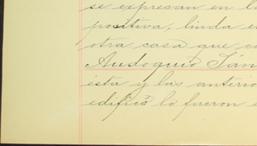 se expresan en la
positiva, linda e
otra casa que e
Audoquio Sán
ésta y las anterio
edificó lo fueron